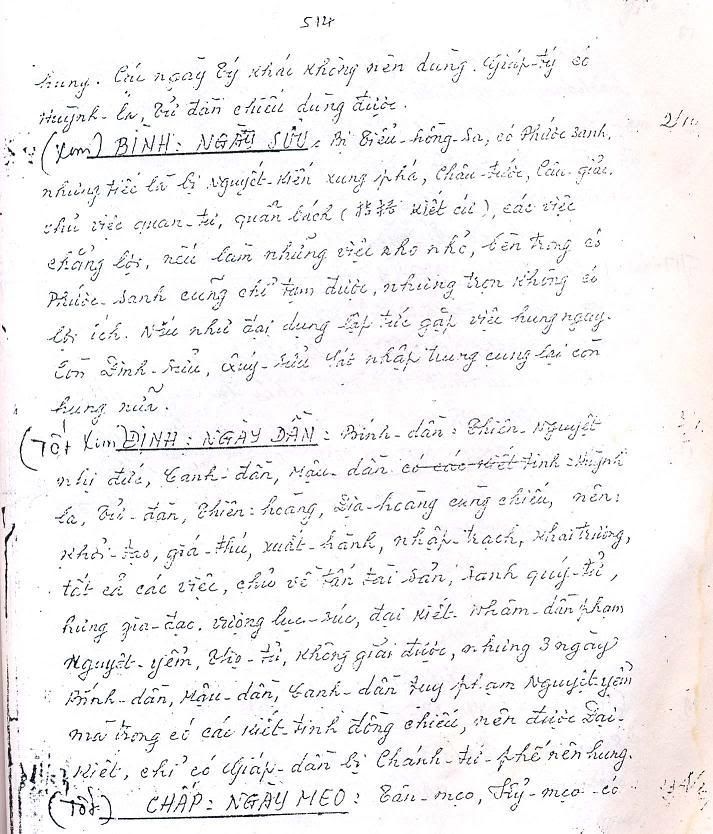 514
hung. Các ngày Tý khác không nên dùng. Giáp-tý có
Huỳnh-la, Tử đàn chiếu dùng được.
(Xem) BÌNH: NGÀY SỬU: Bị Tiểu-hồng-sa, có Phước sanh,
2/10
nhưng tiếc là bị Nguyệt-Kiến xung phá, Châu-tước, Câu-giảo.
chủ việc quan-tư, quẫn bách ( Kiết cứ), các việc
chẳng lợi, nếu làm những việc nho nhỏ, bên trong có
Phước-sanh cũng chỉ tạm được, nhưng trọn không có
lợi ích. Nếu như đại dụng lập tức gặp việc hung ngay.
Còn Đinh-sửu, Quý-sửu Sát nhập trung cung lại còn
hung nữa.
(Tốt Xem) ĐỊNH: NGÀY DẦN: Bính-dần: Thiên-Nguyệt
nhị đức, Canh-dần, Mậu-dần có các Kiết tinh: Huỳnh
la, Tử-đàn, Thiên-hoàng, Địa-hoàng cùng chiếu, nên:
Khởi-tạo, giá-thú, xuất-hành, nhập-trạch, khai trương,
tất cả các việc, chủ về tấn tài sản, sanh quý-tử,
hưng gia-đạo, vượng lục-súc, đại kiết. Nhâm-dần phạm
Nguyệt-yểm, Thọ-tử, không giải được, nhưng 3 ngày
Bính-dần, Mậu-dần, Canh-dần tuy phạm Nguyệt yểm
mà trong có các Kiết-tinh đồng chiếu, nên được Đại-
Kiết, chỉ có Giáp-dần bị Chánh-tứ-phế nên hung.
(Tốt) CHẤP: NGÀY MẸO: Tân-mẹo, Kỷ-mẹo có